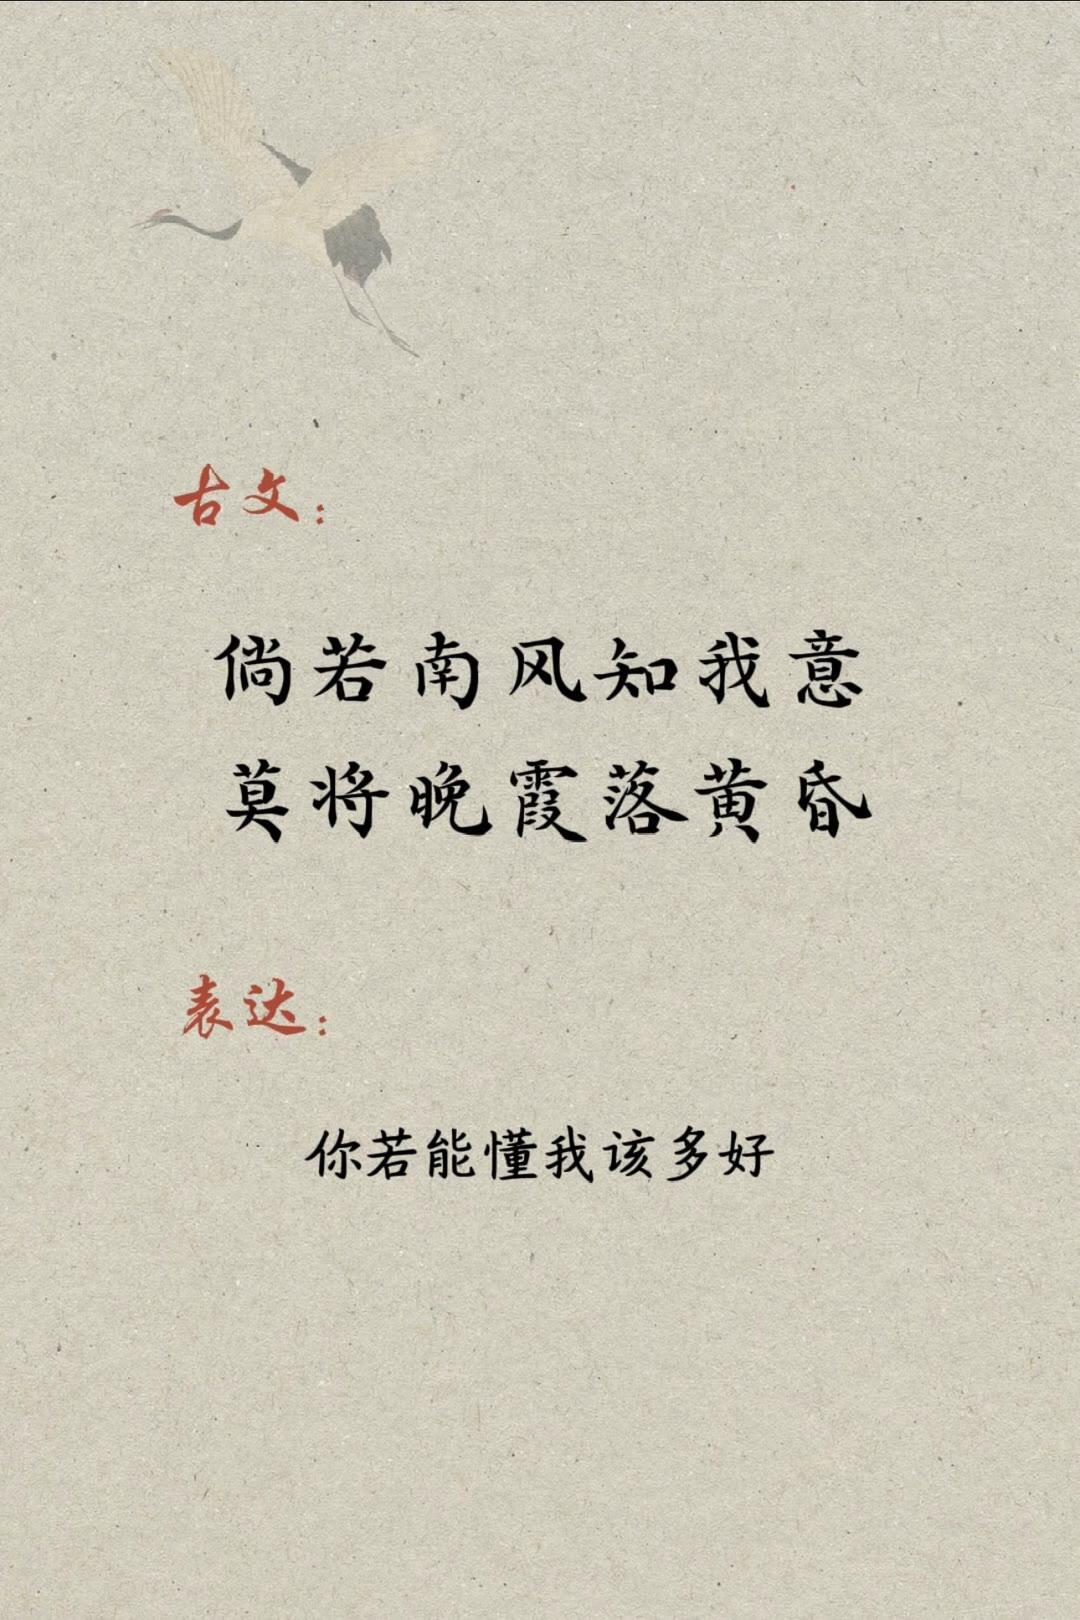 古文：
倘若南风知我意
莫将晚霞落黄昏
表达：
你若能懂我该多好